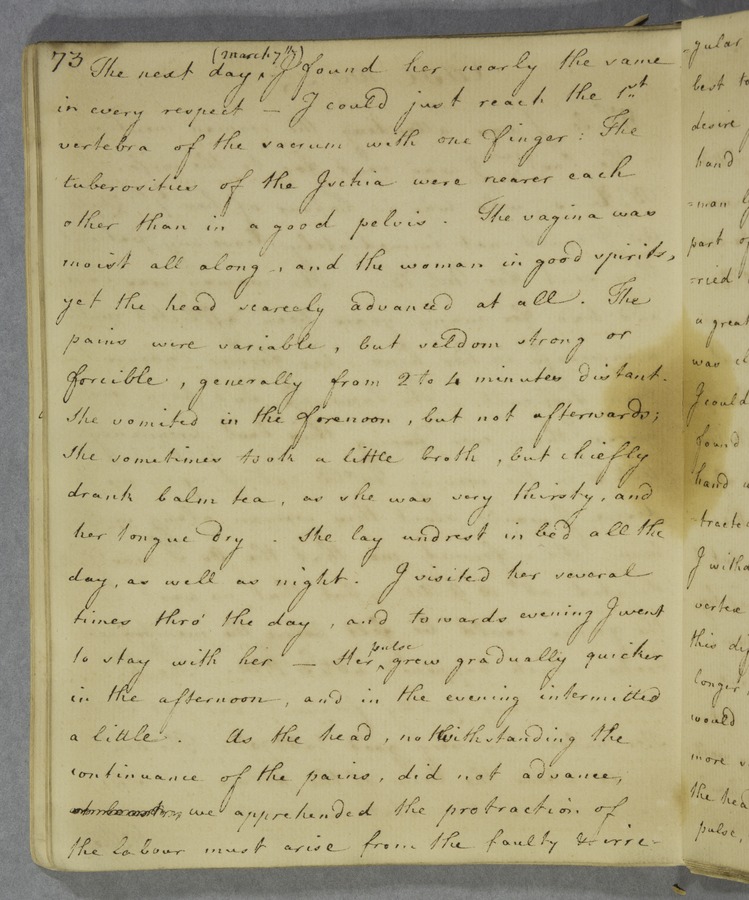 73
(March 7th)
The next day ‸ I found her nearly the same
in every respect — I could just reach the 1st
vertebra of the sacrum with one finger : The
tuberosities of the Ischia were nearer each
other than in a good pelvis . The vagina was
moist all along , and the woman in good spirits,
yet the head scarcely advanced at all . The
pains were variable , but seldom strong or
forcible , generally from 2 to 4 minutes distant .
She vomited in the forenoon , but not afterwards ;
She sometimes took a little broth , but chiefly
drank balm tea , as she was very thirsty , and
her tongue dry . She lay undrest in bed all the
day , as well as night . I visited her several
times thro' the day , and towards evening I went
pulse
to stay with her — Her ‸ grew gradually quicker
in the afternoon , and in the evening intermitted
a little . As the head , notwithstanding the
continuance of the pains , did not advance ,
we apprehended the protraction of
the Labour must arise from the faulty & irre-
-gular
best to
desire
hand
-man
part of
-ried
a great
was
I could
found
hand
tracted
I with
vertex
this
longer
would
more
the hea
pulse,